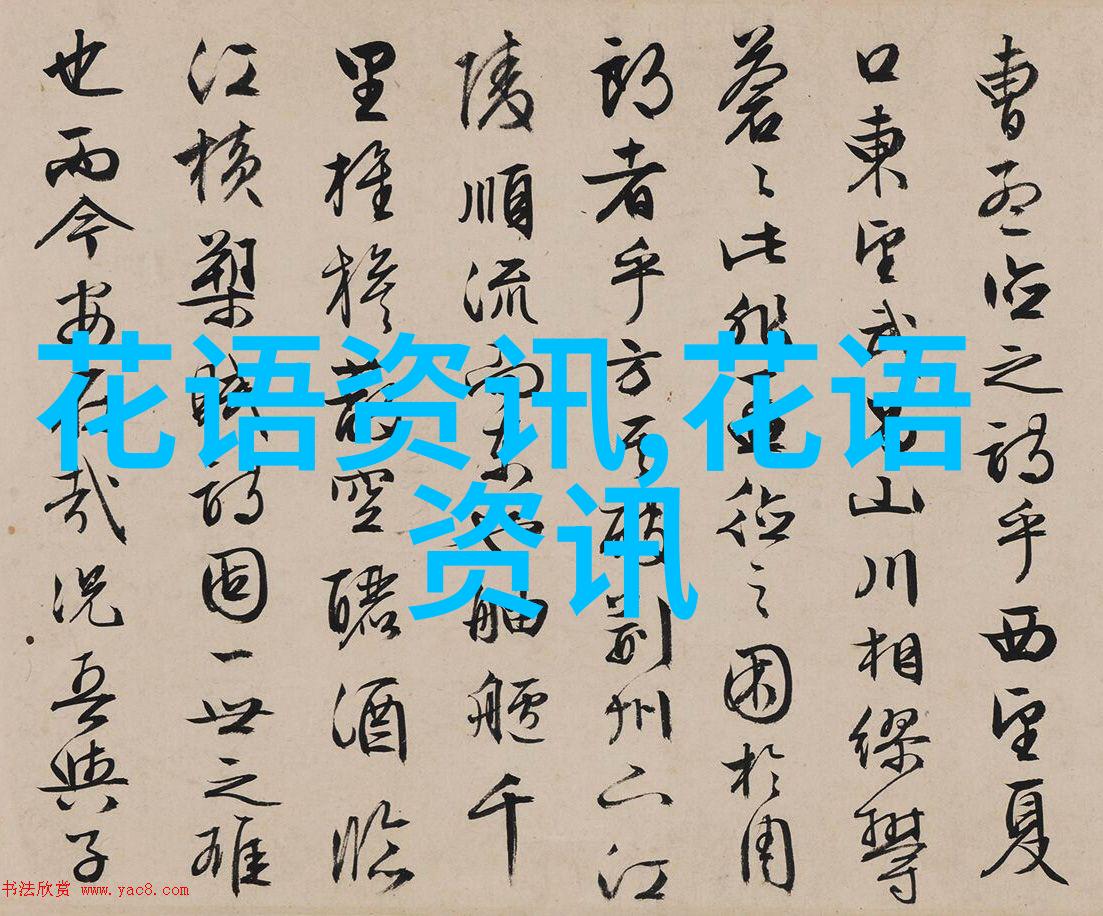 曹孟德之詩乎西望夏
口東望武昌山川相繆鬱
蒼〻此非孟德之困於周
郎者乎方其破荊州下江
陵順流而東也舳艫千
里旌旗蔽空釃酒臨
江橫槊賦詩固一世之雄
也而今安在哉況吾與子
花语资讯,花语
资讯
书法欣赏 www.yac8.com